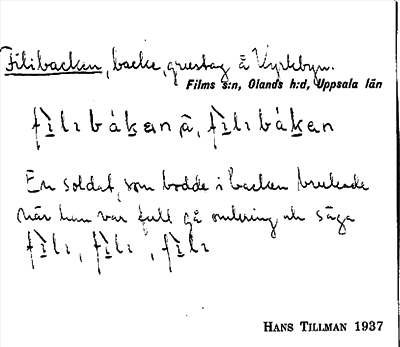 Filibacken, backe, grustag å Kyrkbyn.
Films s:n, Olands h:d, Uppsala län
fìlıbáken ā, fìlıbáken
En soldat, som bodde i backen brukade
när han var full gå omkring och säga
fìlı, fìlı, fìlı
HANS TILLMAN 1937